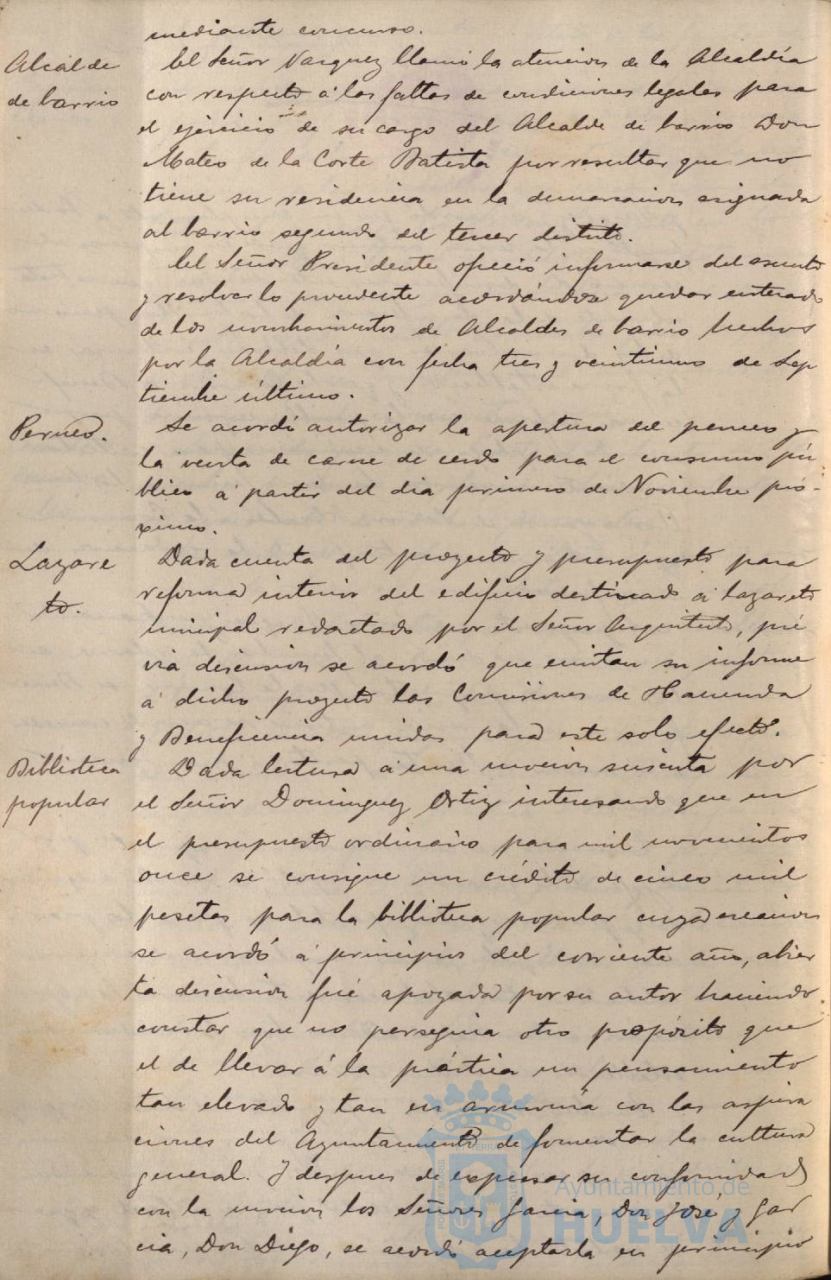 mediante concurso.
Alcalde
de barrio
El Señor Vazquez llamó la atencion de la Alcaldía
con respecto á las faltas de condiciones legales para
el ejercicio de su cargo del Alcalde de barrio Don
Mateo de la Corte Batista por resultar que no
tiene su residencia en la demarcacion asignada
al barrio segundo del tercer distrito.
El Señor Presidente ofreció informarse del asunto
y resolver lo procedente acordándose quedar enterado
de los nombramientos de Alcaldes de barrio hechos
por la Alcaldía con fecha tres y veintiuno de Sep
tiembre último.
Perneo.
Se acordó autorizar la apertura del perneo y
la venta de carne de cerdo para el consumo pú
blico á partir del dia primero de Noviembre pró-
ximo.
Lazare
to.
Dada cuenta del proyecto y presupuesto para
reforma interior del edificio destinado á Lazareto
municipal redactado por el Señor Arquitecto, pré
via discusion se acordó que emitan su informe
á dicho proyecto las Comisiones de Hacienda
y Beneficencia unidas para este solo efecto.
Biblioteca
popular
Dada lectura á una mocion suscrita por
el Señor Dominguez Ortiz interesando que en
el presupuesto ordinario para mil novecientos
once se consigne un crédito de cinco mil
pesetas para la biblioteca popular cuya creacion
se acordó á principios del corriente año, abier
ta discusion fué apoyada por su autor haciendo
constar que no perseguia otro propósito que
el de llevar á la práctica un pensamiento
tan elevado y tan en armonia con las aspira
ciones del Ayuntamiento de fomentar la cultura
general. Y despues de expresar su conformidad
con la mocion los Señores Garcia, Don José y Gar
cia, Don Diego, se acordó aceptarla en principio
Ayuntamiento de
HUELVA